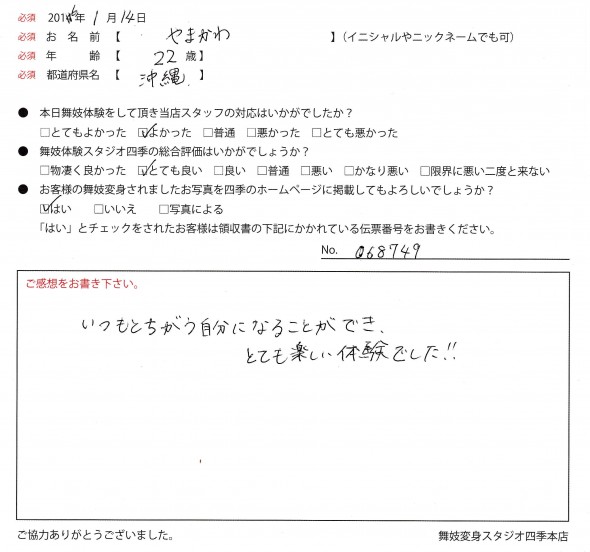 必須 2016年 1月 14日
必須 お名前【 やまかわ 】（イニシャルやニックネームでも可）
必須 年齢【 22歳】
必須 都道府県名【 沖縄 】
● 本日舞妓体験をして頂き当店スタッフの対応はいかがでしたか？
□とてもよかった ☑よかった □普通 □悪かった □とても悪かった
● 舞妓体験スタジオ四季の総合評価はいかがでしょうか？
□物凄く良かった ☑とても良い □良い □普通 □悪い □かなり悪い □限界に悪い二度と来ない
● お客様の舞妓変身されましたお写真を四季のホームページに掲載してもよろしいでしょうか？
☑はい □いいえ □写真による
「はい」とチェックをされたお客様は領収書の下記にかかれている伝票番号をお書きください。
No. 068749
ご感想をお書き下さい。
いつもとちがう自分になることができ、
とても楽しい体験でした!!
ご協力ありがとうございました。 舞妓変身スタジオ四季本店